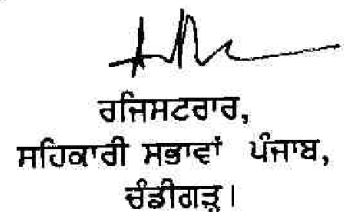 ਰਜਿਸਟਰਾਰ,
ਸਹਿਕਾਰੀ ਸਭਾਵਾਂ ਪੰਜਾਬ,
ਚੰਡੀਗੜ੍ਹ।